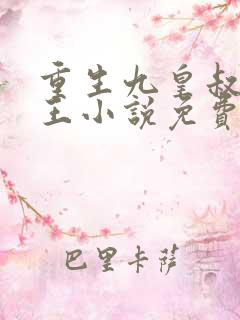 重生九皇叔
王小說免費
巴里卡薩